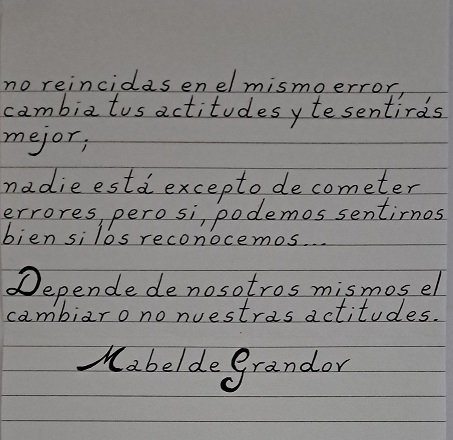 no reincidas en el mismo error,
cambia tus actitudes y te sentirás
mejor;
nadie está excepto de cometer
errores, pero si, podemos sentirnos
bien si los reconocemos...
Depende de nosotros mismos el
cambiar o no nuestras actitudes.
Mabel de Grandov